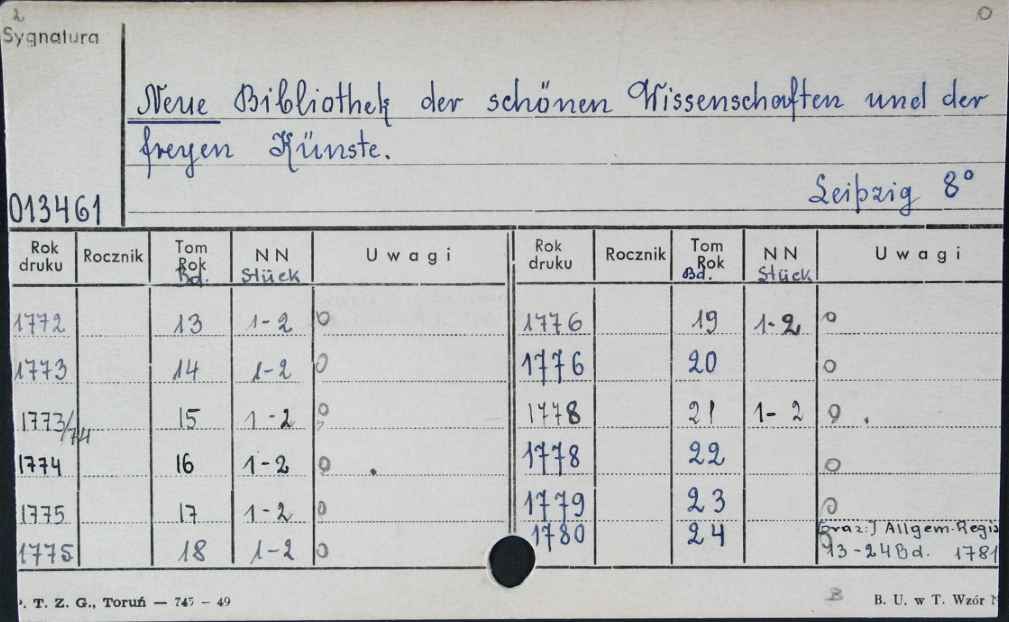 2
O
Sygnatura
Neue Bibliothek der schönen Wissenschaften und der
freyen Künste.
Leipzig 8°
013461
Rok druku Rocznik Tom Rok Bd. NN Stück Uwagi Rok druku Rocznik Tom Rok Bd. NN Stück Uwagi
1772 13 1-2 o 1776 19 1-2 o
1773 14 1-2 o 1776 20 o
1773/74 15 1-2 o 1778 21 1-2 o .
1774 16 1-2 o . 1778 22 o
1775 17 1-2 o 1779 23 o
1775 18 1-2 o 1780 24 Allgem. Regis
13-24 Bd. 1781
. T. Z. G., Toruń — 745 — 49
B
B. U. w T. Wzór